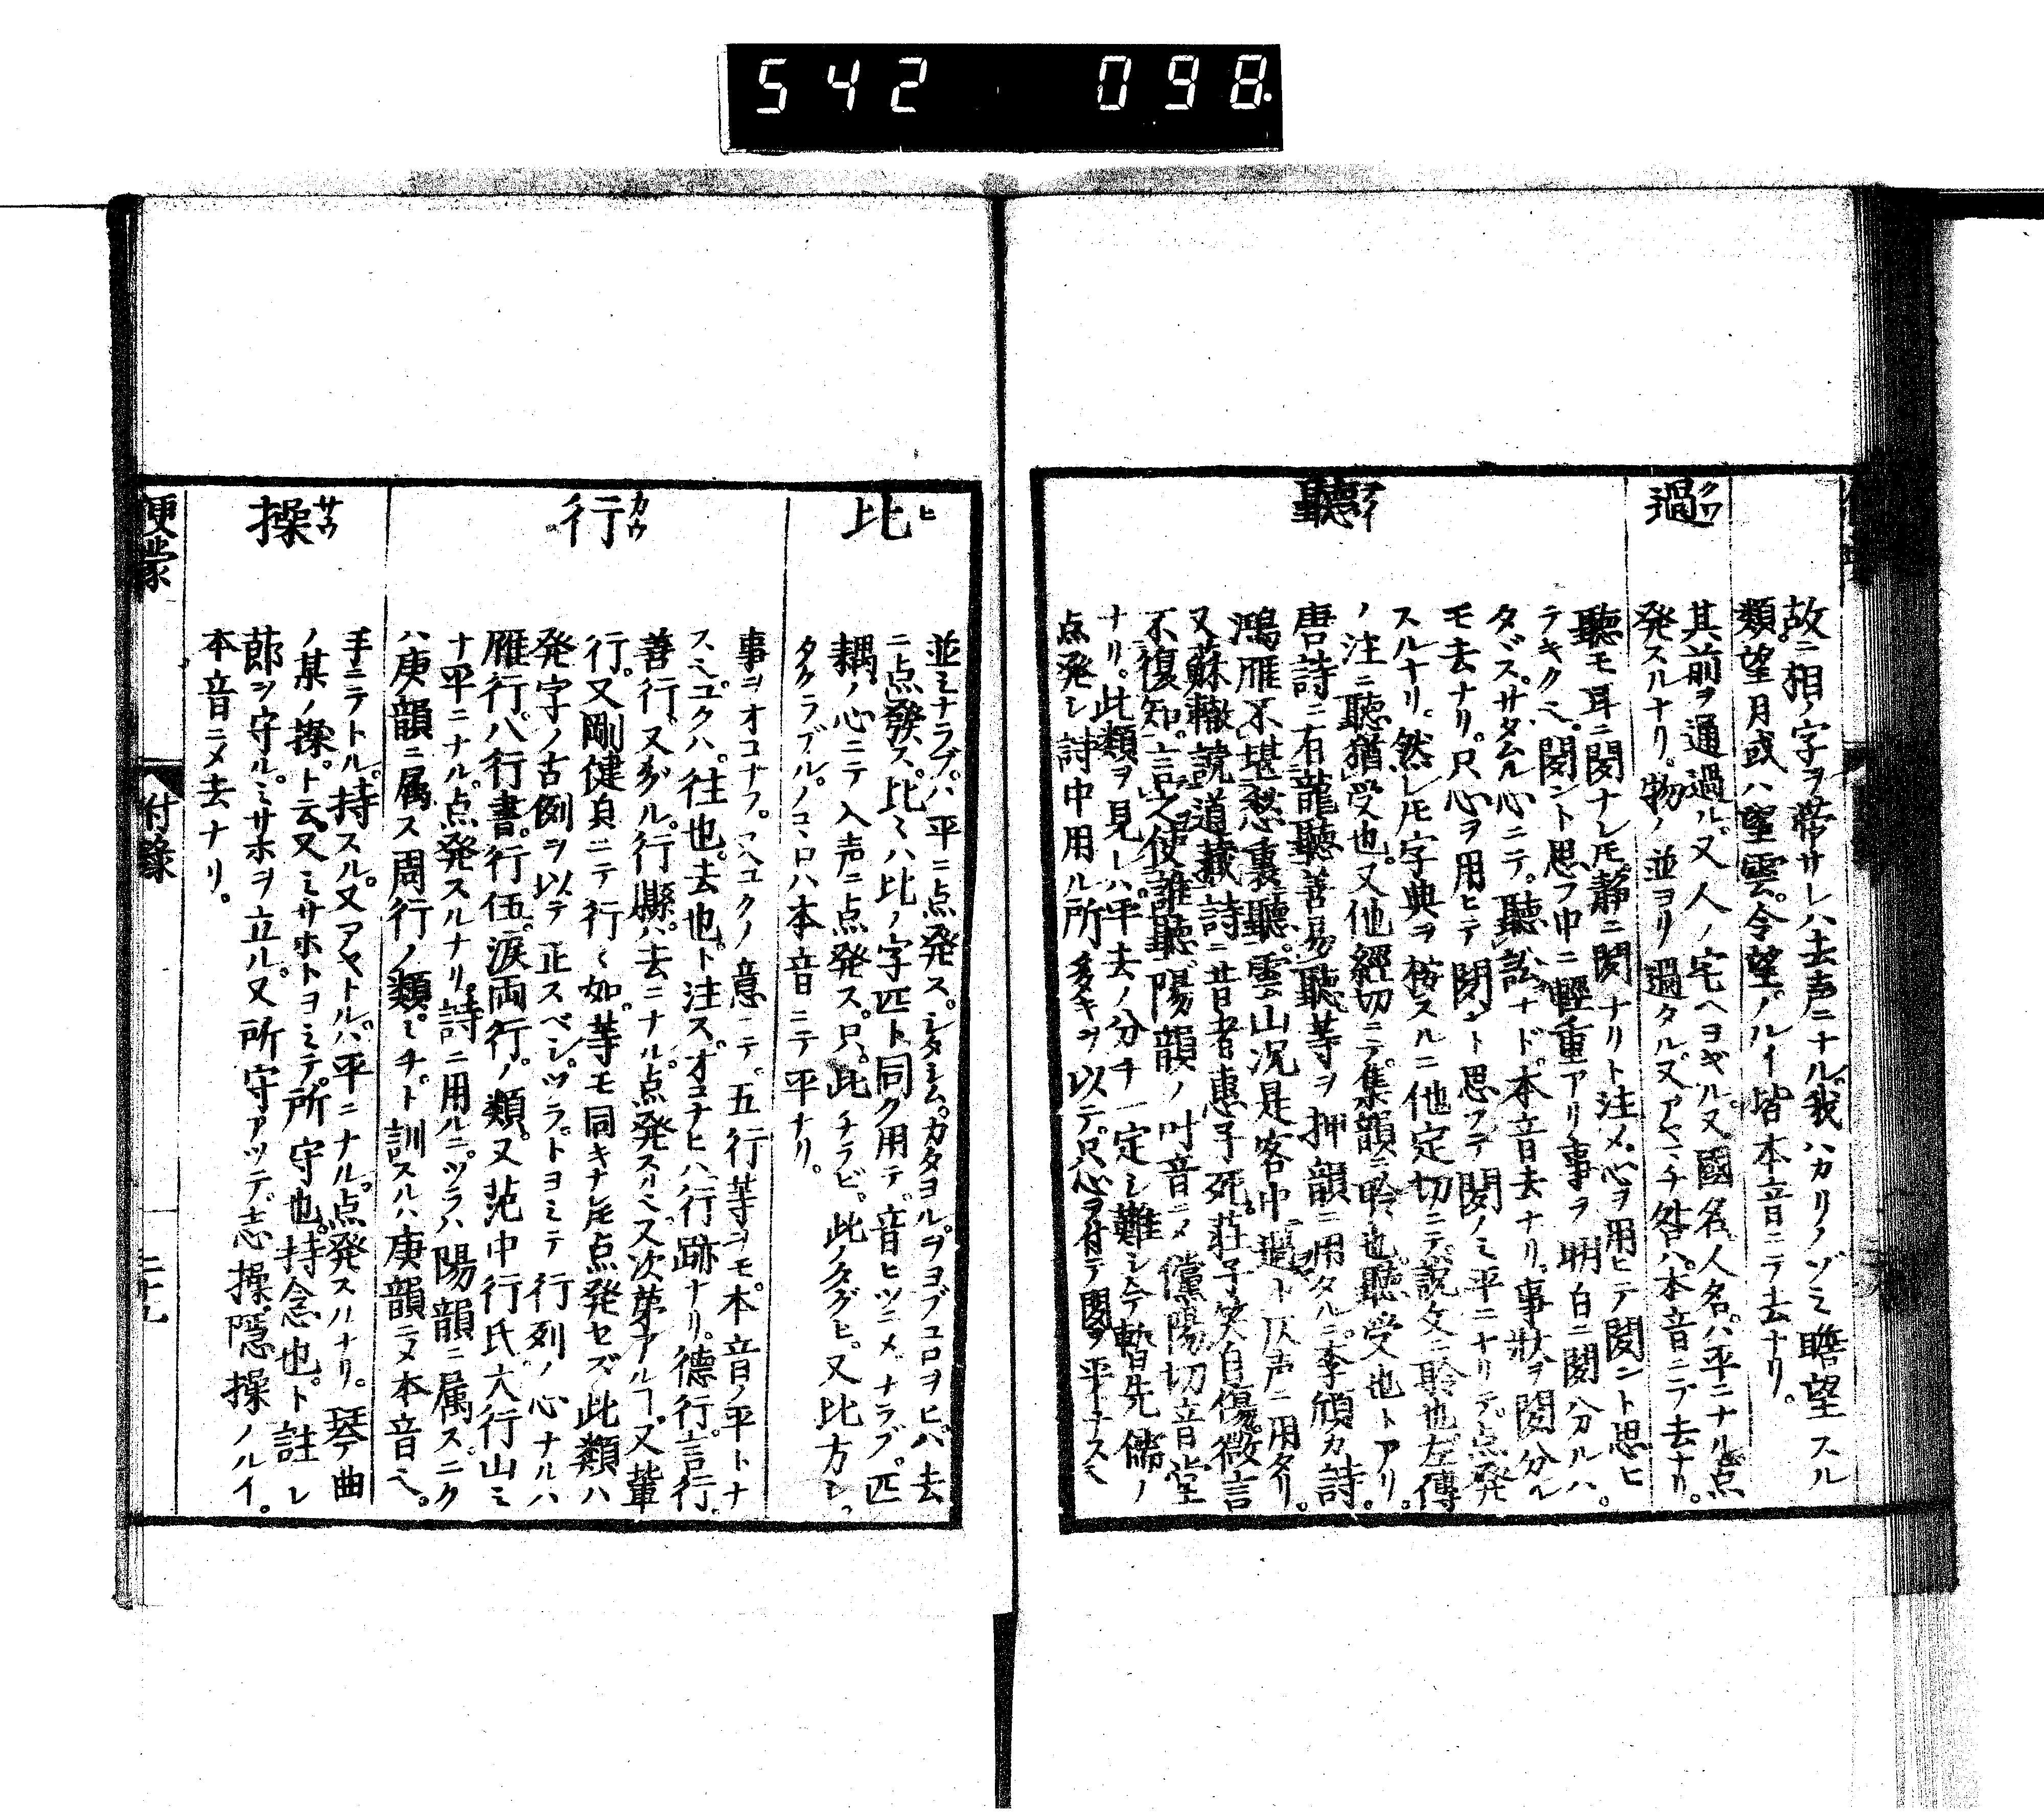 542 098.
故ニ相ノ字ヲ帯サレハ去声ニナル。我ハカリノゾミ瞻望スル
類。望月或ハ望雲。令望ノルイ皆本音ニテ去ナリ。
過 クワ
其前ヲ通過ル。又人ノ宅ヘヨギル。又國名人名。ハ平ニナル点
発スルナリ。物ノ並ヨリ過タル。又アヤマチ咎ハ。本音ニテ去ナリ。
聽 テイ
聽モ耳ニ聞ナレ𪜈。静ニ聞ナリト注メ。心ヲ用ヒテ聞ント思ヒ
テキク也。聞ント思フ中ニ軽重アリ事ヲ明白ニ聞分ルハ。
タヾス。サダムル心ニテ。聽訟ナド。本音去ナリ。事状ヲ聞分ル
モ去ナリ。只心ヲ用ヒテ聞ント思フテ聞ノミ平ニナリテ。点発
スルナリ。然レ𪜈字典ヲ按スルニ他定切ニテ。説文ニ聆也。左傳
ノ注ニ聽猶受也。又他經切ニテ。集韻ニ聆也。聽受也トアリ。
唐詩ニ有龍聽善易聽等ヲ押韻ニ用タルニ。李頎カ詩。
鴻雁不堪愁裏聽。雲山况是客中過ト仄声ニ用タリ。
又蘇轍読道蔵詩ニ昔者惠子死。莊子笑自傷。微言
不復知。言之使誰聽。陽韻ノ叶音ニメ儻陽切音堂
ナリ。此類ヲ見レハ。平去ノ分チ一定シ難シ今暫先儒ノ
点発シ詩中用ル所多キヲ以テ。只心ヲ付テ聞ヲ平トナス也
比 ヒ
並ミナラブ。ハ平ニ点発ス。シタシム。カタヨル。ヲヨブコロヲヒ。ハ去
ニ点發ス。比ミハ比ノ字匹ト同ク用テ。音ヒツニメ。ナラブ。匹
耦ノ心ニテ入声ニ点発ス。只。此チラビ。此ノタグヒ。又比方シ。
タクラブル。ノコヽロハ本音ニテ平ナリ。
行 カウ
事ヲオコナフ。又ユクノ意ニテ。五行等ヲモ。本音ノ平トナ
スミユクハ。往也。去也。ト注ス。オコナヒハ。行跡ナリ。徳行。言行。
善行。又メグル。行縣。ハ去ニナル。点発スルヘス次第アルヿ。又輩
行。又剛健貞ニテ行〻如。等モ同キナ𪜈点発セズ此類ハ
発字ノ古例ヲ以テ正スベシ。ツラ。トヨミテ行列ノ心ナルハ
雁行。八行書。行伍。涙両行。ノ類。又范中行氏大行山ミ
ナ平ニナル。点発スルナリ。詩ニ用ルニ。ツラハ陽韻ニ属ス。ユク
ハ庚韻ニ属ス周行ノ類。ミチ。ト訓スルハ庚韻ニメ本音也。
操 サウ
手ニテトル。持スル。又アヤトル。ハ平ニナル。点発スルナリ。琴ノ曲
ノ某ノ操。ト云。又ミサホトヨミテ。所守也。持念也。ト註レ
節ヲ守ル。ミサホヲ立ル。又所守アツテ。志操。隠操ノルイ。
本音ニメ去ナリ。
便蒙
付録
二十九